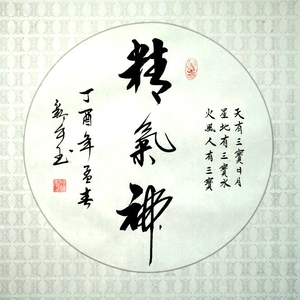 天有三寶日月
星地有三寶水
火風人有三寶
精氣神
丁酉年孟春